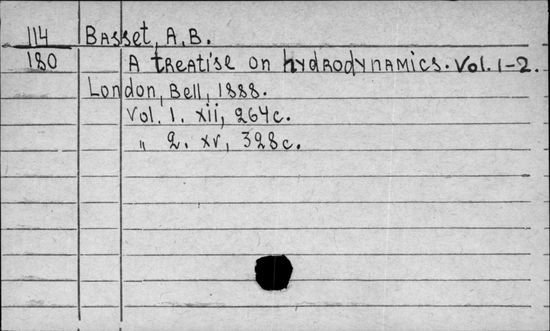 114 Basset, A.B.
180 A treatise on hydrodynamics. Vol. 1-2.
London, Bell, 1888.
Vol. 1. xii, 264c.
" 2. xv, 328c.